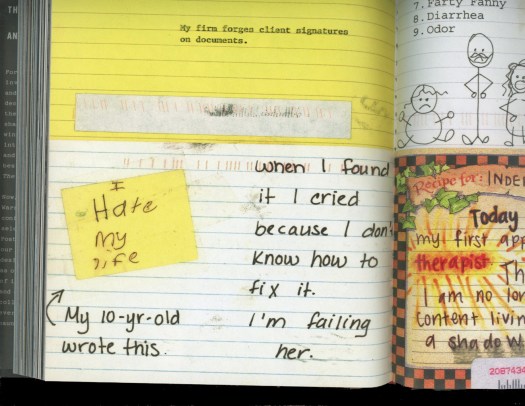 My firm forges client signatures
on documents.
I
Hate
my
life
My 10-yr-old
wrote this.
When I found
it I cried
because I don't
know how to
fix it.
I'm failing
her.
7. Party Fanny
8. Diarrhea
9. Odor
Recipe for: INDE
Today
my first app
therapist Th
I am no lon
content livin
a shadow
2087434